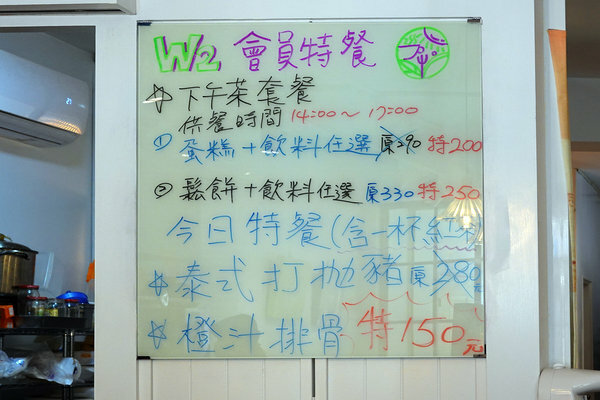 W2 會員特餐
☆下午茶套餐
供餐時間 14:00~17:00
① 蛋糕+飲料任選 原290 特200
② 鬆餅+飲料任選 原330 特250
今日特餐(含一杯紅茶)
☆泰式打拋豬 原280元
☆橙汁排骨 特150元